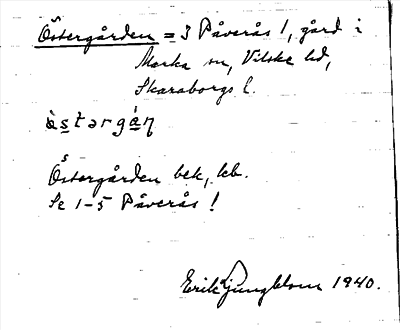 Östergården = 3 Påverås 1, gård i
Marka sn, Vilske hd,
Skaraborgs l.
östərgån
Östergården bek, kb.
Se 1-5 Påverås!
Erik Ljungblom 1940.